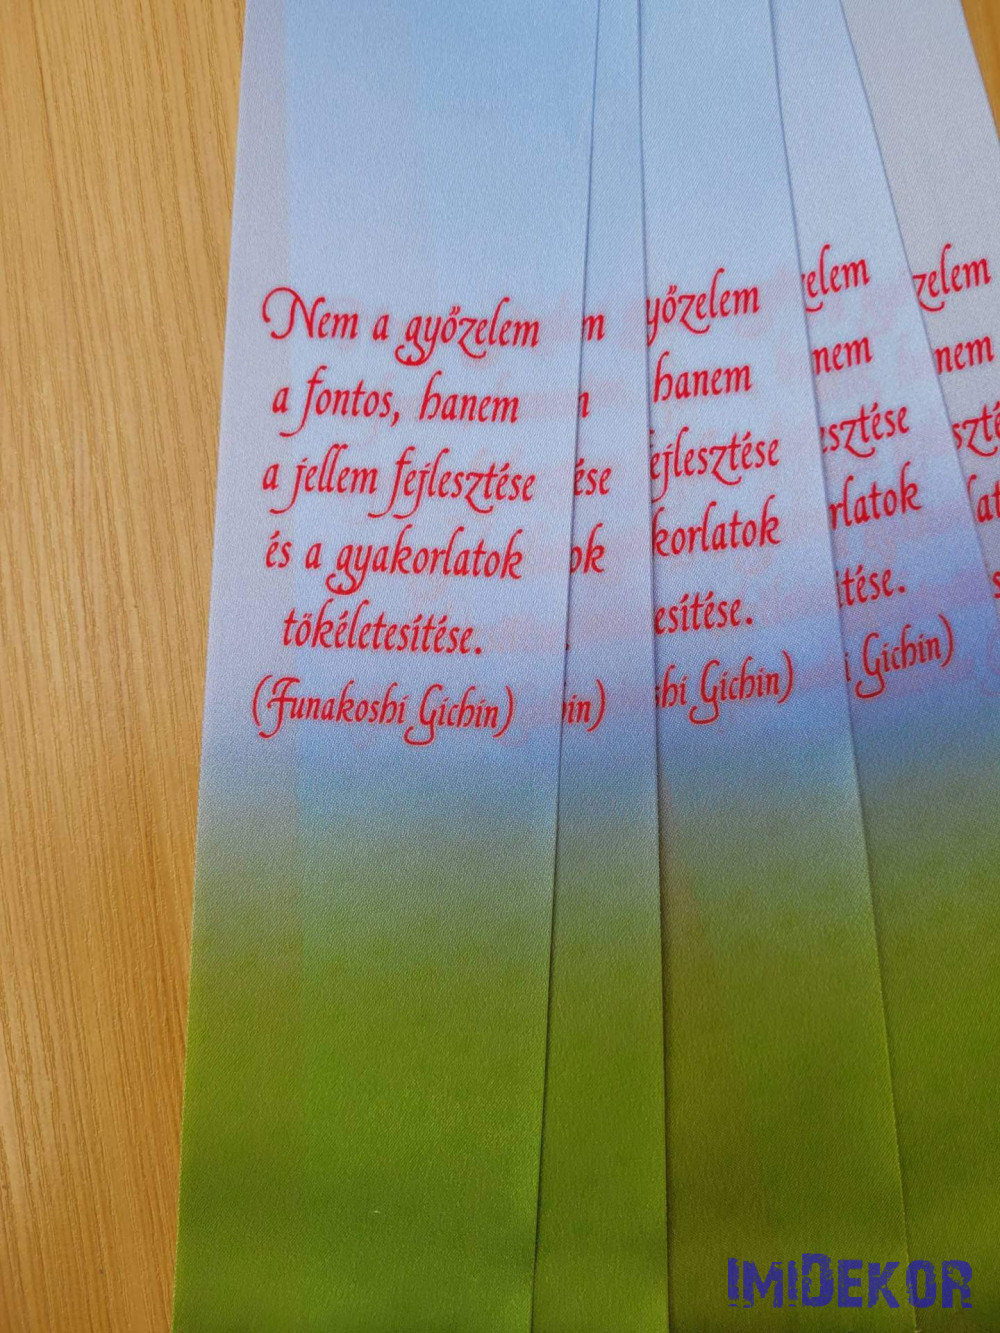 Nem a győzelem
a fontos, hanem
a jellem fejlesztése
és a gyakorlatok
tökéletesítése.
(Funakoshi Gichin)
m
m
ése
ok
.
hin)
yőzelem
hanem
ejlesztése
korlatok
esítése.
shi Gichin)
zelem
nem
esztése
rlatok
ítése.
i Gichin)
zelem
nem
szté
lat
s
IMIDEKOR